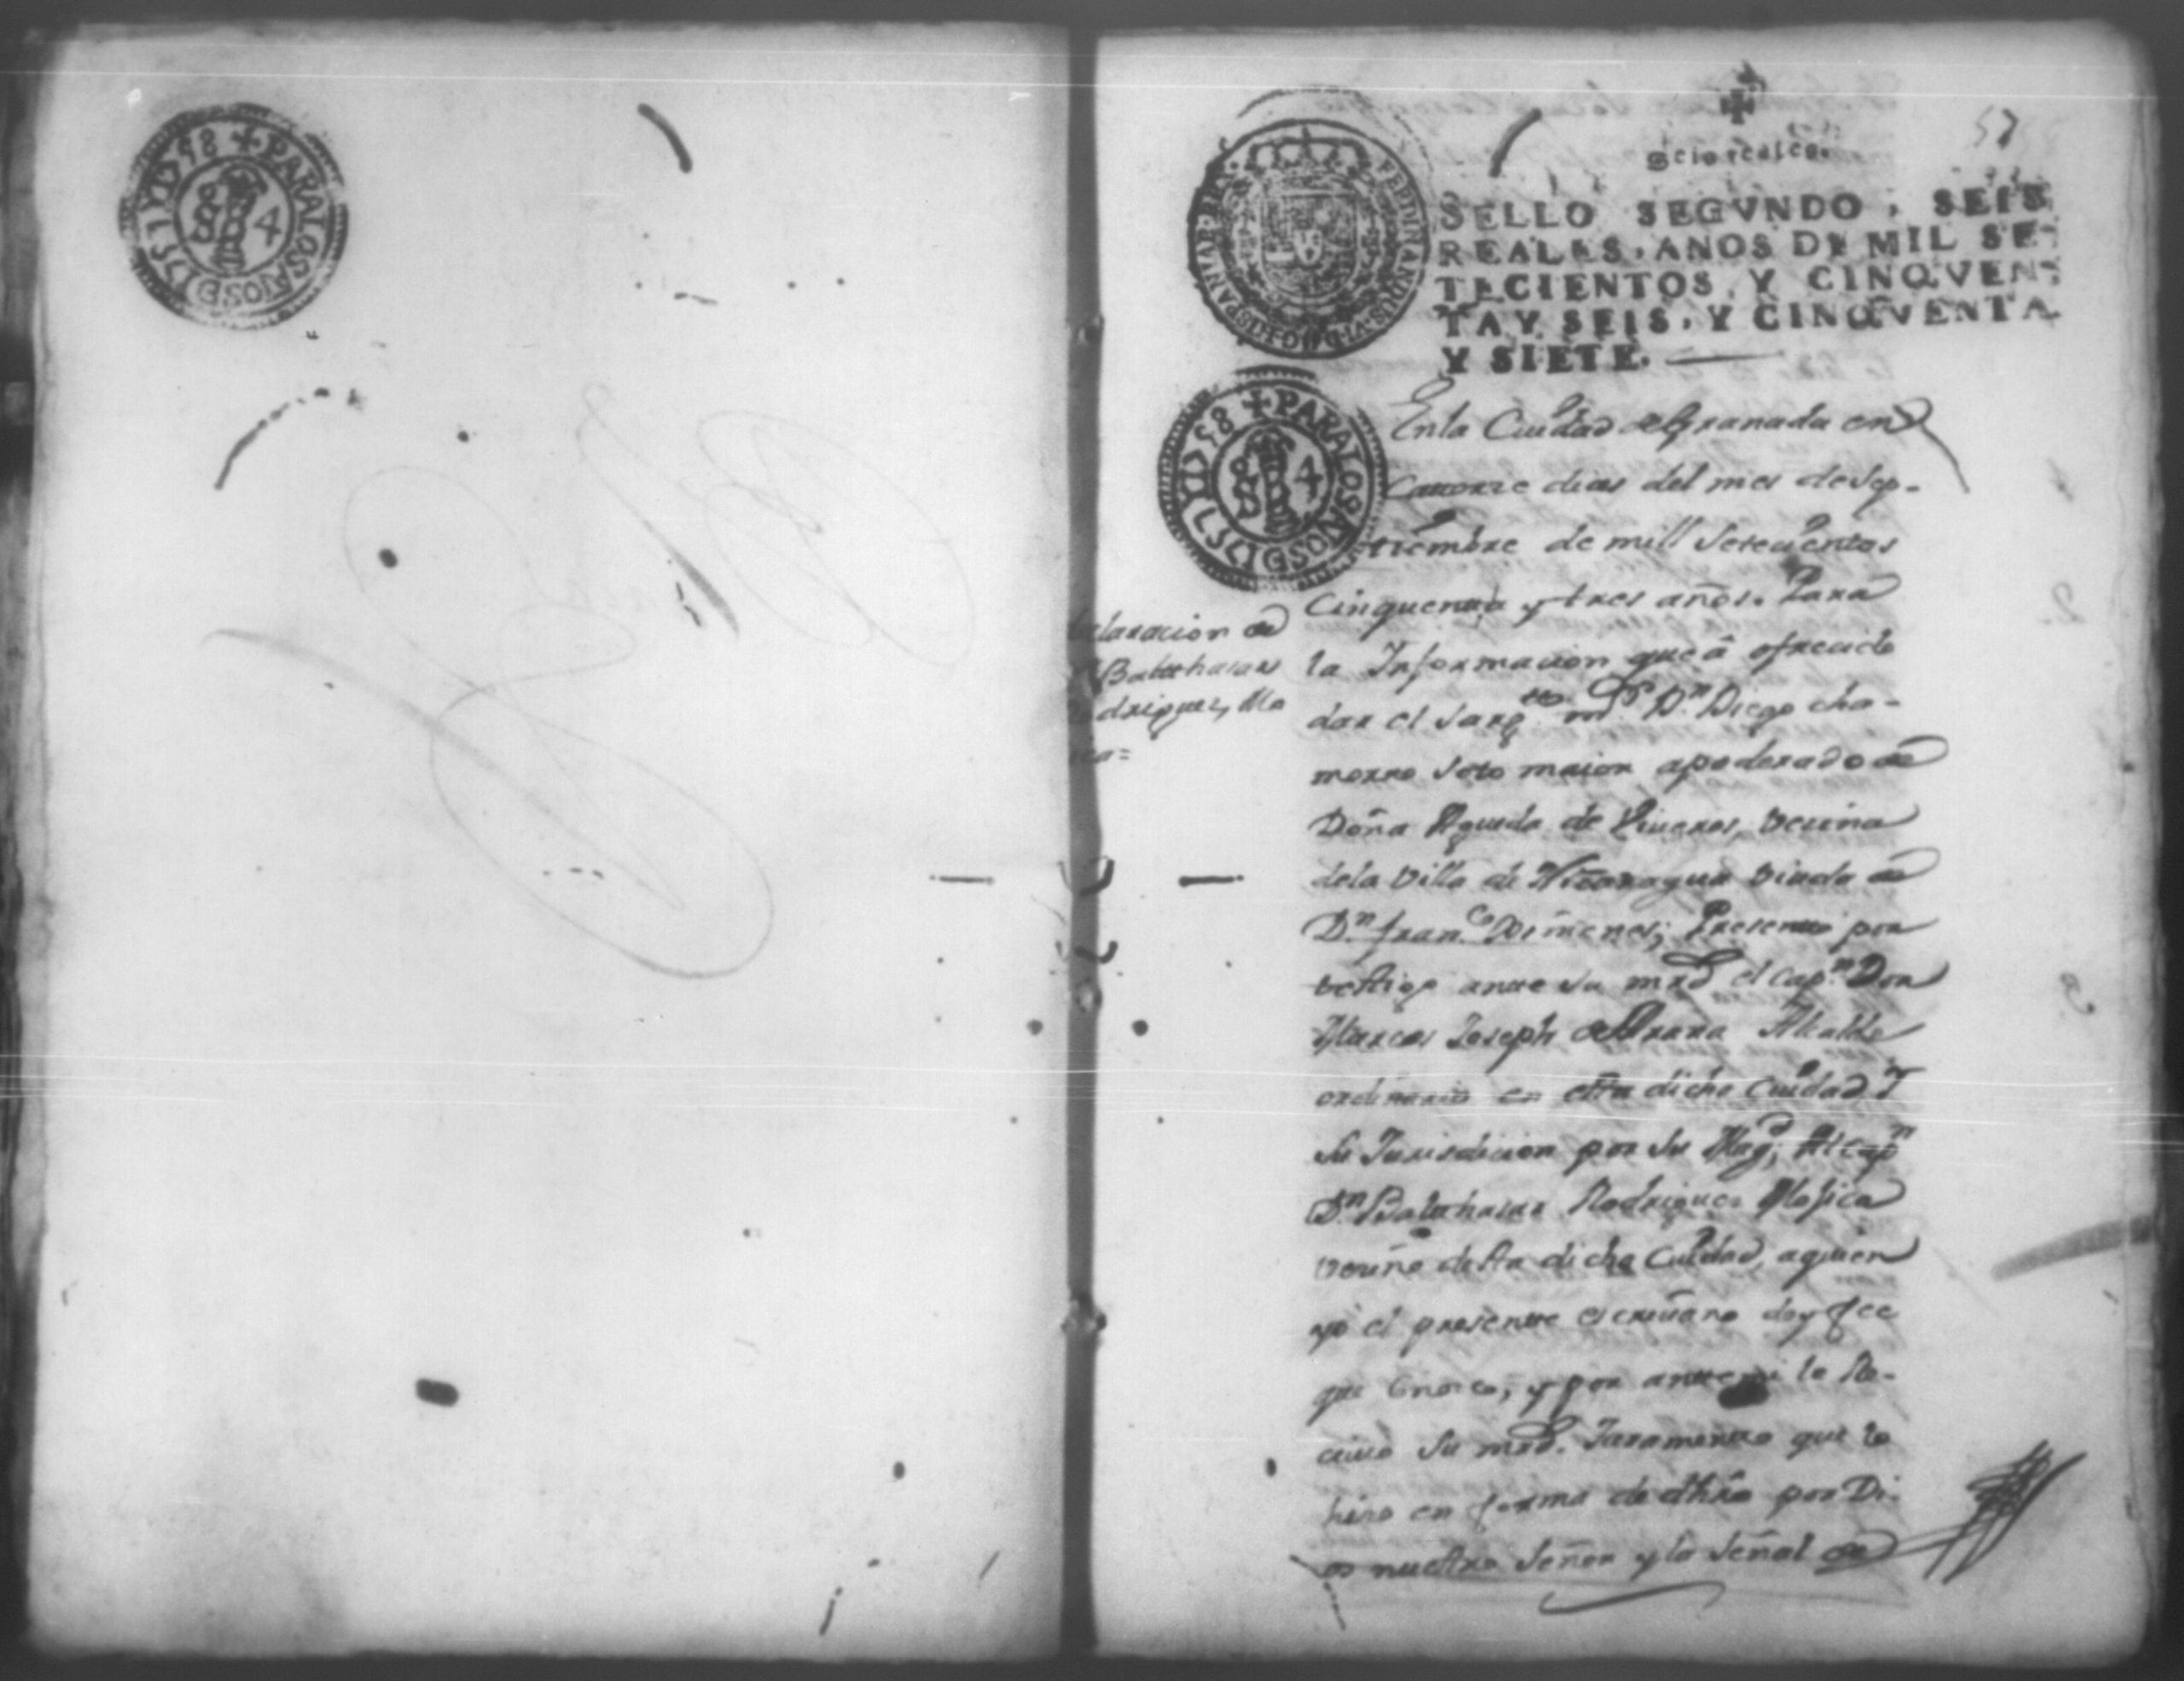 + PARA LOS AÑOS D 1757 Y D 58
4
57
Seis reales.
SELLO SEGVNDO, SEIS
REALES, AÑOS DE MIL SE-
TECIENTOS, Y CINQVEN-
TA Y SEIS, Y CINQVENTA
Y SIETE.
FERDINANDUS VI D G HISPANIAR REX
+ PARA LOS AÑOS D 1757 Y D 58
4
En la Ciudad de Granada en
Catorze dias del mes de Sep-
tiembre de mill Setecientos
Cinquenta y tres años. Para
la Informacion que â ofrecido
dar el Sargto mr Dn Diego cha-
morro Soto maior apoderado de
Doña Agueda de Viueros, Vecina
de la Villa de Nicaragua Viuda de
Dn franco Ximenes; Presento por
testigo ante su mrd el Capn Don
Marcos Joseph de Arana Alcalde
ordinario en esta dicha Ciudad Y
su Jurisdicion por su Magd; Al capn
Dn Balthasar Rodrigues Mojica
Vecino desta dicha Ciudad, a quien
yo el presente escriuano doy fee
que Conosco, y por ante mi le Re-
ciuio su mrd. Juramento que lo
hizo en forma de dhro por Di-
os nuestro Señor y la Señal de
claracion de
Balthasar
Rodriguez, Mo
ica=